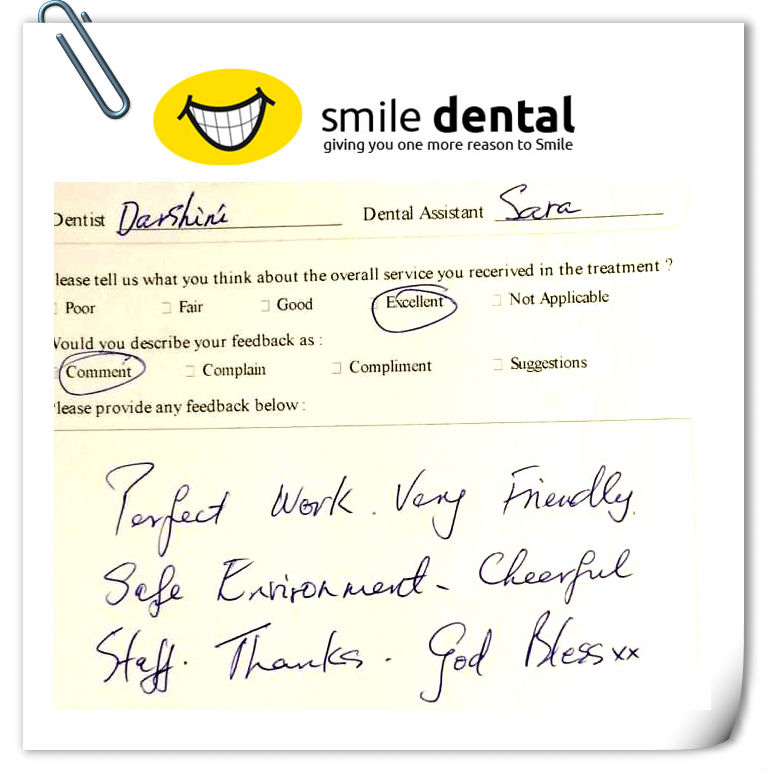 smile dental
giving you one more reason to Smile
Dentist Darshini Dental Assistant Sara
lease tell us what you think about the overall service you recerived in the treatment ?
Poor Fair Good Excellent Not Applicable
Vould you describe your feedback as :
Comment Complain Compliment Suggestions
lease provide any feedback below :
Perfect Work. Very Friendly.
Safe Environment - Cheerful
Staff. Thanks. God Bless xx